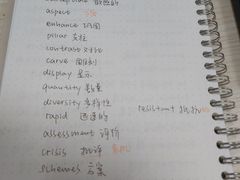 aspect 方面
enhance 巩固
pillar 支柱
contrast 对比
carve 雕刻
display 显示
quantity 数量
diversity 多样性
resistant 抵抗
rapid 迅速的
assessment 评价
crisis 批评 危机
schemes 方案